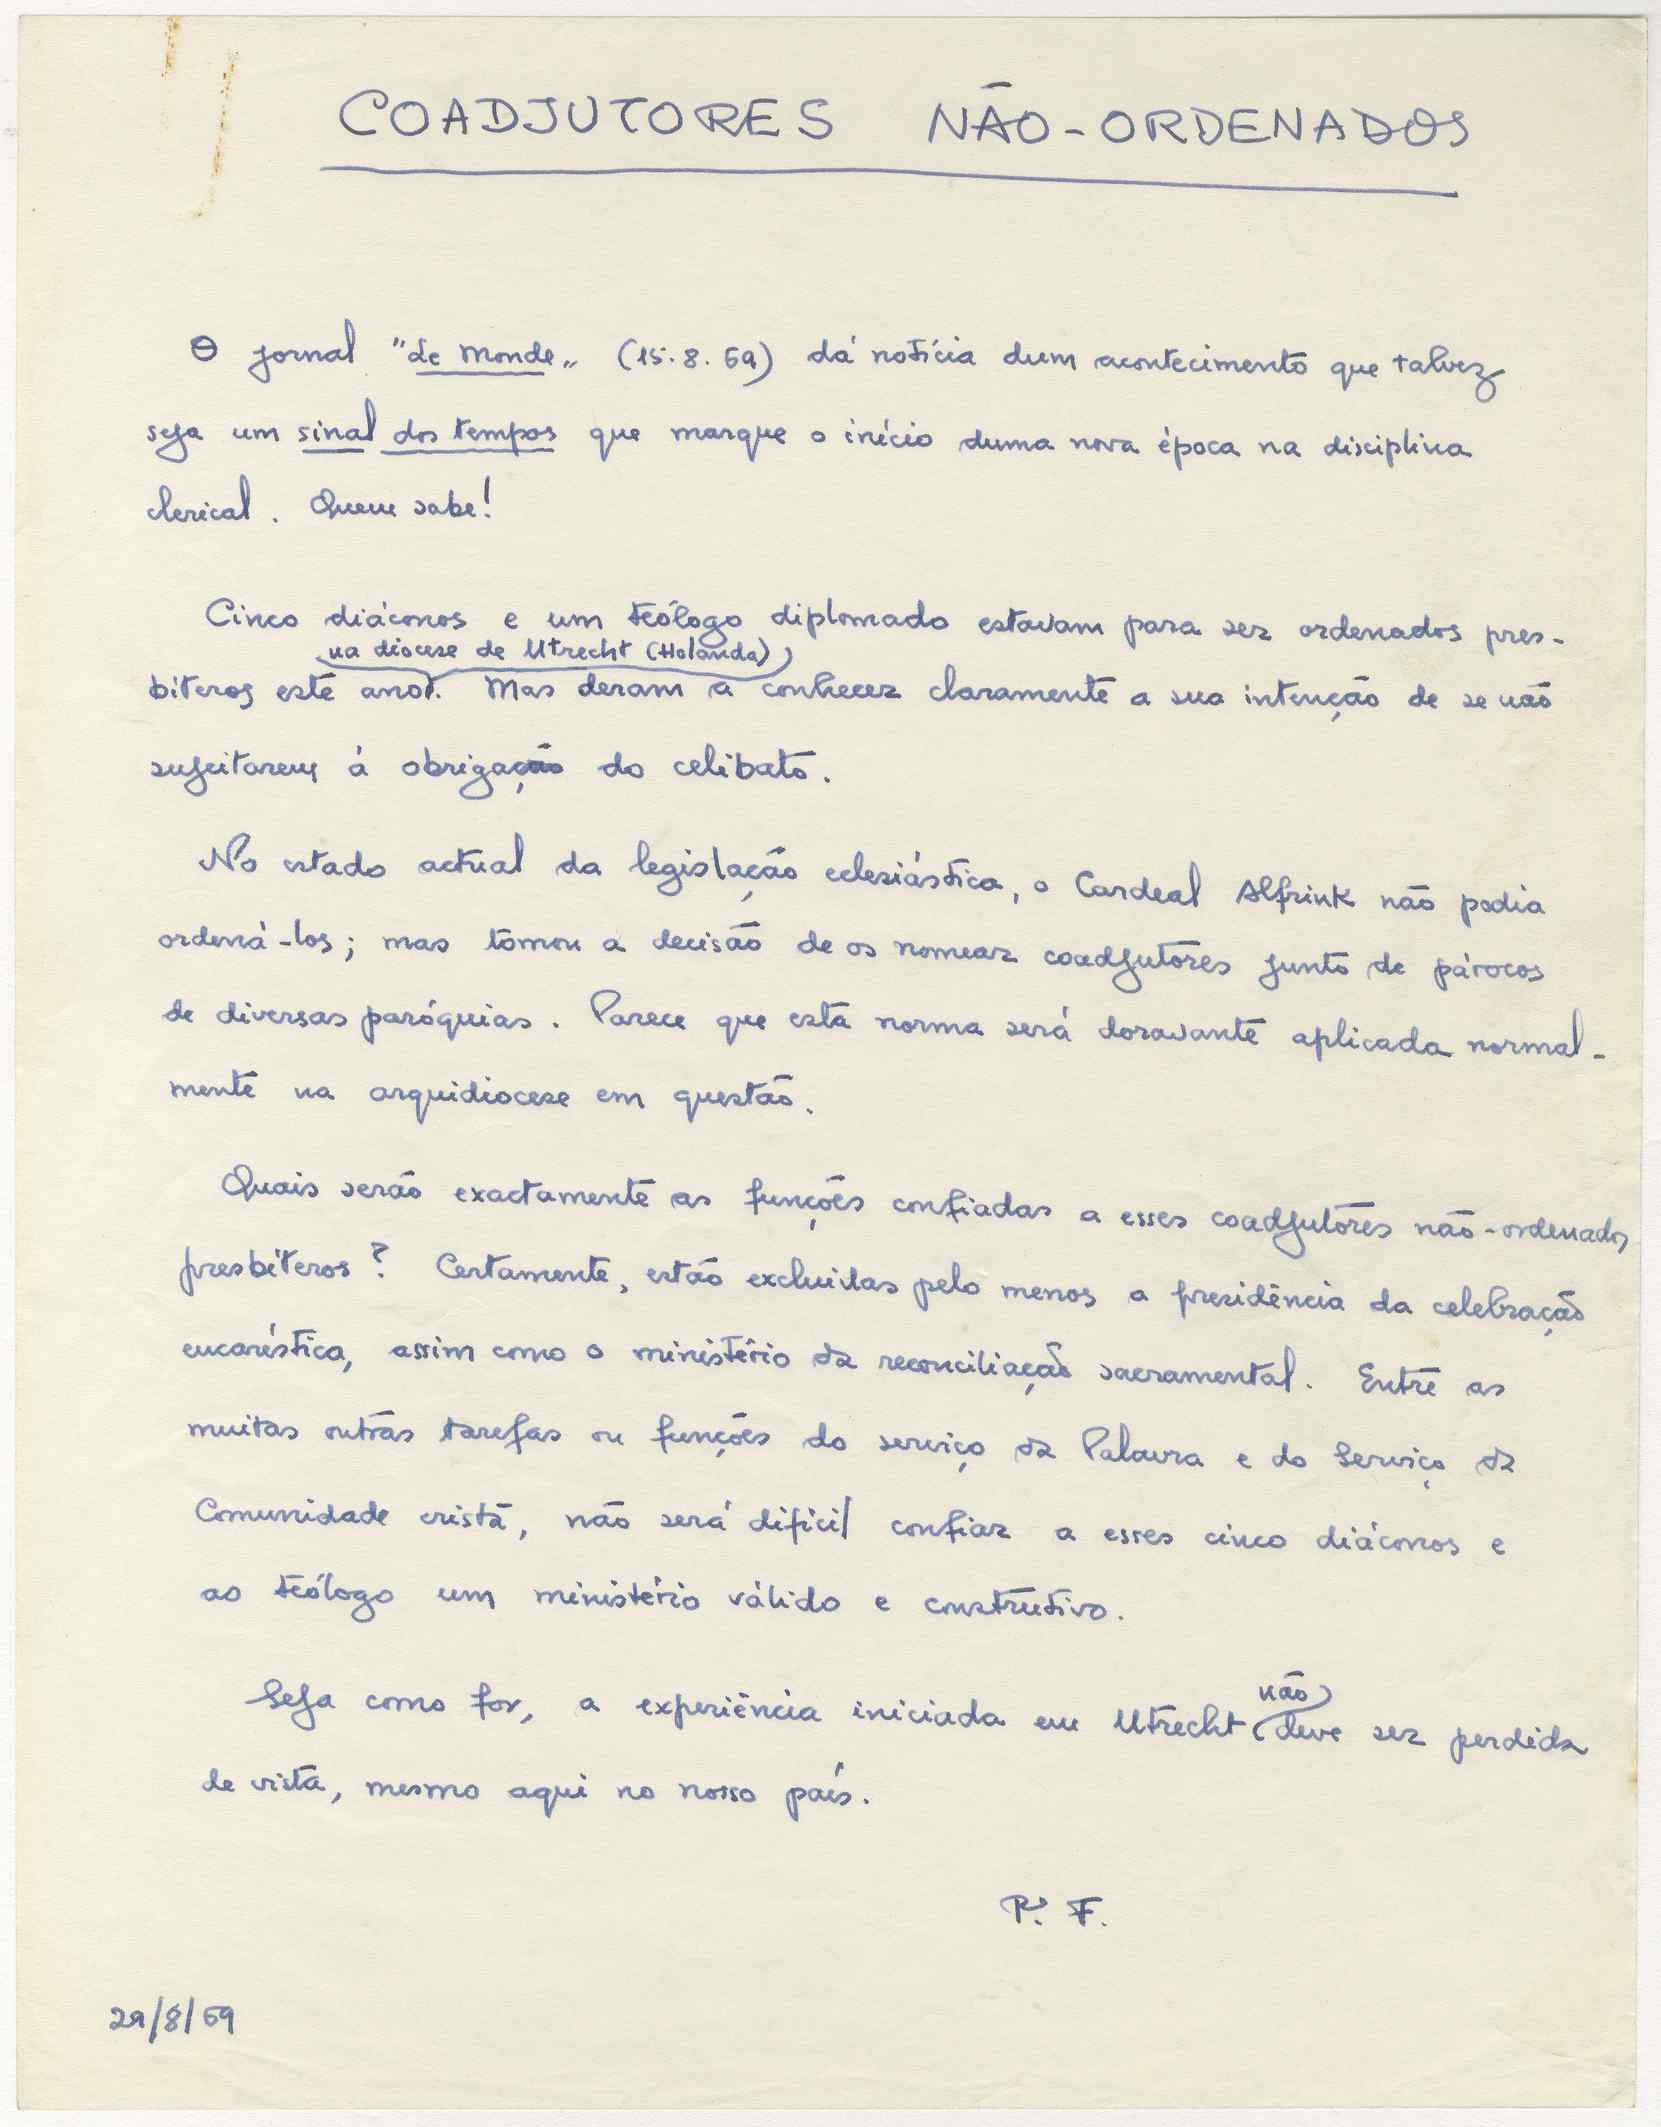 COADJUTORES NÃO-ORDENADOS
O jornal "Le Monde" (15.8.69) dá notícia dum acontecimento que talvez
seja um sinal dos tempos que marque o início duma nova época na disciplina
clerical. Quem sabe!
Cinco diáconos e um teólogo diplomado estavam para ser ordenados pres-
na diocese de Utrecht (Holanda)
biteros este ano. Mas deram a conhecer claramente a sua intenção de se não
sujeitarem à obrigação do celibato.
No estado actual da legislação eclesiástica, o Cardeal Alfrink não podia
ordená-los; mas tomou a decisão de os nomear coadjutores junto de párocos
de diversas paróquias. Parece que esta norma será doravante aplicada normal-
mente na arquidiocese em questão.
Quais serão exactamente as funções confiadas a esses coadjutores não-ordenados
presbíteros? Certamente, estão excluidas pelo menos a presidência da celebração
eucarística, assim como o ministério da reconciliação sacramental. Entre as
muitas outras tarefas ou funções do serviço da Palavra e do Serviço da
Comunidade cristã, não será difícil confiar a esses cinco diáconos e
ao teólogo um ministério válido e construtivo.
não
Seja como for, a experiência iniciada em Utrecht deve ser perdida
de vista, mesmo aqui no nosso país.
P. F.
29/8/69